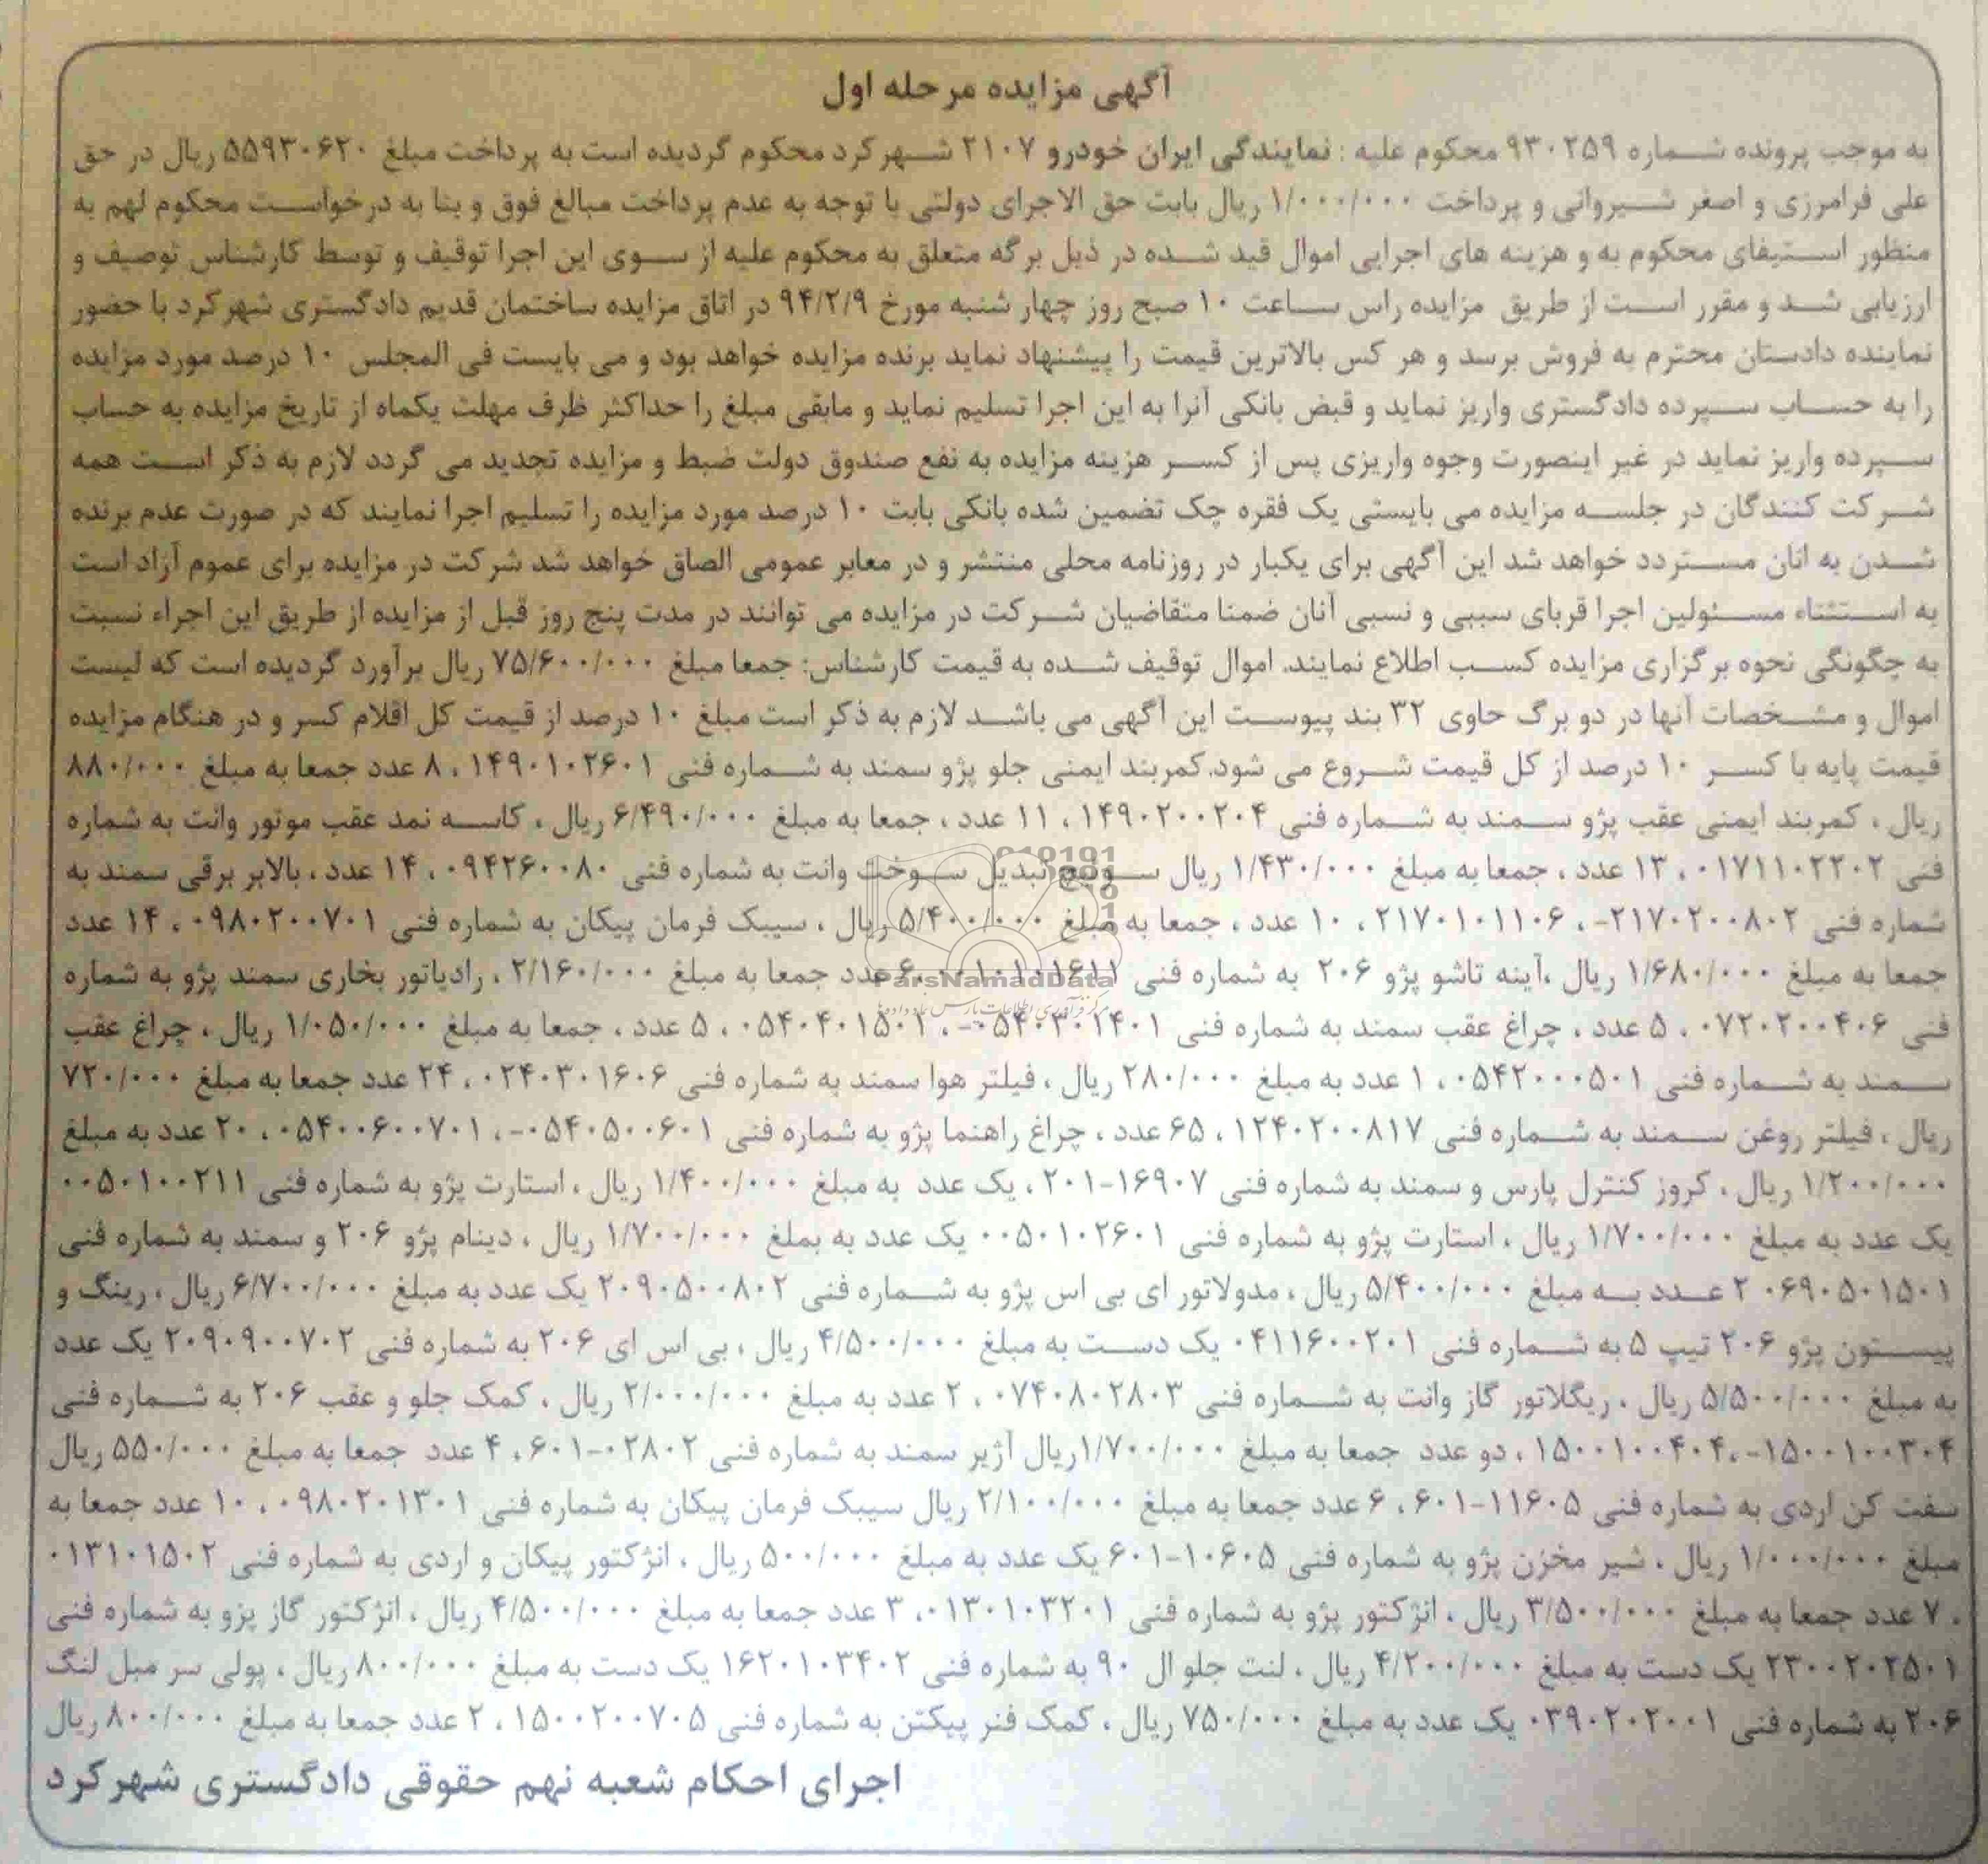 آگهی مزایده مرحله اول
به موجب پرونده شماره ۹۳۰۲۵۹ محکوم علیه : نمایندگی ایران خودرو ۲۱۰۷ شهرکرد محکوم گردیده است به پرداخت مبلغ ۵۵۹۳۰۶۲۰ ریال در حق
علی فرامرزی و اصغر شیروانی و پرداخت ۱/۰۰۰/۰۰۰ ریال بابت حق الاجرای دولتی با توجه به عدم پرداخت مبالغ فوق و بنا به درخواست محکوم لهم به
منظور استیفای محکوم به و هزینه های اجرایی اموال قید شده در ذیل برگه متعلق به محکوم علیه از سوی این اجرا توقیف و توسط کارشناس توصیف و
ارزیابی شد و مقرر است از طریق مزایده راس ساعت ۱۰ صبح روز چهار شنبه مورخ ۹۴/۲/۹ در اتاق مزایده ساختمان قدیم دادگستری شهرکرد با حضور
نماینده دادستان محترم به فروش برسد و هر کس بالاترین قیمت را پیشنهاد نماید برنده مزایده خواهد بود و می بایست فی المجلس ۱۰ درصد مورد مزایده
را به حساب سپرده دادگستری واریز نماید و قبض بانکی آنرا به این اجرا تسلیم نماید و مابقی مبلغ را حداکثر ظرف مهلت یکماه از تاریخ مزایده به حساب
سپرده واریز نماید در غیر اینصورت وجوه واریزی پس از کسر هزینه مزایده به نفع صندوق دولت ضبط و مزایده تجدید می گردد لازم به ذکر است همه
شرکت کنندگان در جلسه مزایده می بایستی یک فقره چک تضمین شده بانکی بابت ۱۰ درصد مورد مزایده را تسلیم اجرا نمایند که در صورت عدم برنده
شدن به انان مسترد خواهد شد این آگهی برای یکبار در روزنامه محلی منتشر و در معابر عمومی الصاق خواهد شد شرکت در مزایده برای عموم آزاد است
به استثناء مسئولین اجرا قربای سببی و نسبی آنان ضمنا متقاضیان شرکت در مزایده می توانند در مدت پنج روز قبل از مزایده از طریق این اجراء نسبت
به چگونگی نحوه برگزاری مزایده کسب اطلاع نمایند. اموال توقیف شده به قیمت کارشناس: جمعا مبلغ ۷۵/۶۰۰/۰۰۰ ریال برآورد گردیده است که لیست
اموال و مشخصات آنها در دو برگ حاوی ۳۲ بند پیوست این آگهی می باشد لازم به ذکر است مبلغ ۱۰ درصد از قیمت کل اقلام کسر و در هنگام مزایده
قیمت پایه با کسر ۱۰ درصد از کل قیمت شروع می شود.کمربند ایمنی جلو پژو سمند به شماره فنی ۱۴۹۰۱۰۲۶۰۱ ، ۸ عدد جمعا به مبلغ ۸۸۰/۰۰۰
ریال ، کمربند ایمنی عقب پژو سمند به شماره فنی ۱۴۹۰۲۰۰۲۰۴ ، ۱۱ عدد ، جمعا به مبلغ ۶/۴۹۰/۰۰۰ ریال ، کاسه نمد عقب موتور وانت به شماره
فنی ۰۱۷۱۱۰۲۲۰۲ ، ۱۳ عدد ، جمعا به مبلغ ۱/۴۳۰/۰۰۰ ریال سوئیچ تبدیل سوخت وانت به شماره فنی ۰۹۴۲۶۰۰۸۰ ، ۱۴ عدد ، بالابر برقی سمند به
شماره فنی ۲۱۷۰۲۰۰۸۰۲- ، ۲۱۷۰۱۰۱۱۰۶ ، ۱۰ عدد ، جمعا به مبلغ ۵/۴۰۰/۰۰۰ ریال ، سیبک فرمان پیکان به شماره فنی ۰۹۸۰۲۰۰۷۰۱ ، ۱۴ عدد
جمعا به مبلغ ۱/۶۸۰/۰۰۰ ریال ،آینه تاشو پژو ۲۰۶ به شماره فنی ۰۱۰۱۰۱۶۱۱ ، ۶ عدد جمعا به مبلغ ۲/۱۶۰/۰۰۰ ، رادیاتور بخاری سمند پژو به شماره
فنی ۰۷۲۰۲۰۰۴۰۶ ، ۵ عدد ، چراغ عقب سمند به شماره فنی ۰۵۴۰۳۰۱۴۰۱- ، ۰۵۴۰۴۰۱۵۰۱ ، ۵ عدد ، جمعا به مبلغ ۱/۰۵۰/۰۰۰ ریال ، چراغ عقب
سمند به شماره فنی ۰۵۴۲۰۰۰۵۰۱ ، ۱ عدد به مبلغ ۲۸۰/۰۰۰ ریال ، فیلتر هوا سمند به شماره فنی ۰۲۴۰۳۰۱۶۰۶ ، ۲۴ عدد جمعا به مبلغ ۷۲۰/۰۰۰
ریال ، فیلتر روغن سمند به شماره فنی ۱۲۴۰۲۰۰۸۱۷ ، ۶۵ عدد ، چراغ راهنما پژو به شماره فنی ۰۵۴۰۵۰۰۶۰۱- ، ۰۵۴۰۰۶۰۰۷۰۱ ، ۲۰ عدد به مبلغ
۱/۲۰۰/۰۰۰ ریال ، کروز کنترل پارس و سمند به شماره فنی ۱۶۹۰۷-۲۰۱ ، یک عدد به مبلغ ۱/۴۰۰/۰۰۰ ریال ، استارت پژو به شماره فنی ۰۰۵۰۱۰۰۲۱۱
یک عدد به مبلغ ۱/۷۰۰/۰۰۰ ریال ، استارت پژو به شماره فنی ۰۰۵۰۱۰۲۶۰۱ یک عدد به بملغ ۱/۷۰۰/۰۰۰ ریال ، دینام پژو ۲۰۶ و سمند به شماره فنی
۰۶۹۰۵۰۱۵۰۱ ۲ عدد به مبلغ ۵/۴۰۰/۰۰۰ ریال ، مدولاتور ای بی اس پژو به شماره فنی ۲۰۹۰۵۰۰۸۰۲ یک عدد به مبلغ ۶/۷۰۰/۰۰۰ ریال ، رینگ و
پیستون پژو ۲۰۶ تیپ ۵ به شماره فنی ۰۴۱۱۶۰۰۲۰۱ یک دست به مبلغ ۴/۵۰۰/۰۰۰ ریال ، بی اس ای ۲۰۶ به شماره فنی ۲۰۹۰۹۰۰۷۰۲ یک عدد
به مبلغ ۵/۵۰۰/۰۰۰ ریال ، ریگلاتور گاز وانت به شماره فنی ۰۷۴۰۸۰۲۸۰۳ ، ۲ عدد به مبلغ ۲/۰۰۰/۰۰۰ ریال ، کمک جلو و عقب ۲۰۶ به شماره فنی
۱۵۰۰۱۰۰۳۰۴-،۱۵۰۰۱۰۰۴۰۴ ، دو عدد جمعا به مبلغ ۱/۷۰۰/۰۰۰ریال آژیر سمند به شماره فنی ۰۲۸۰۲-۶۰۱ ، ۴ عدد جمعا به مبلغ ۵۵۰/۰۰۰ ریال
سفت کن اردی به شماره فنی ۱۱۶۰۵-۶۰۱ ، ۶ عدد جمعا به مبلغ ۲/۱۰۰/۰۰۰ ریال سیبک فرمان پیکان به شماره فنی ۰۹۸۰۲۰۱۳۰۱ ، ۱۰ عدد جمعا به
مبلغ ۱/۰۰۰/۰۰۰ ریال ، شیر مخزن پژو به شماره فنی ۱۰۶۰۵-۶۰۱ یک عدد به مبلغ ۵۰۰/۰۰۰ ریال ، انژکتور پیکان و اردی به شماره فنی ۰۱۳۱۰۱۵۰۲
، ۷ عدد جمعا به مبلغ ۳/۵۰۰/۰۰۰ ریال ، انژکتور پژو به شماره فنی ۰۱۳۰۱۰۳۲۰۱ ، ۳ عدد جمعا به مبلغ ۴/۵۰۰/۰۰۰ ریال ، انژکتور گاز پژو به شماره فنی
۲۳۰۰۲۰۲۵۰۱ یک دست به مبلغ ۴/۲۰۰/۰۰۰ ریال ، لنت جلو ال ۹۰ به شماره فنی ۱۶۲۰۱۰۳۴۰۲ یک دست به مبلغ ۸۰۰/۰۰۰ ریال ، پولی سر میل لنگ
۲۰۶ به شماره فنی ۰۳۹۰۲۰۲۰۰۱ یک عدد به مبلغ ۷۵۰/۰۰۰ ریال ، کمک فنر پیکتن به شماره فنی ۱۵۰۰۲۰۰۷۰۵ ، ۲ عدد جمعا به مبلغ ۸۰۰/۰۰۰ ریال
اجرای احکام شعبه نهم حقوقی دادگستری شهرکرد
ParsNamadData